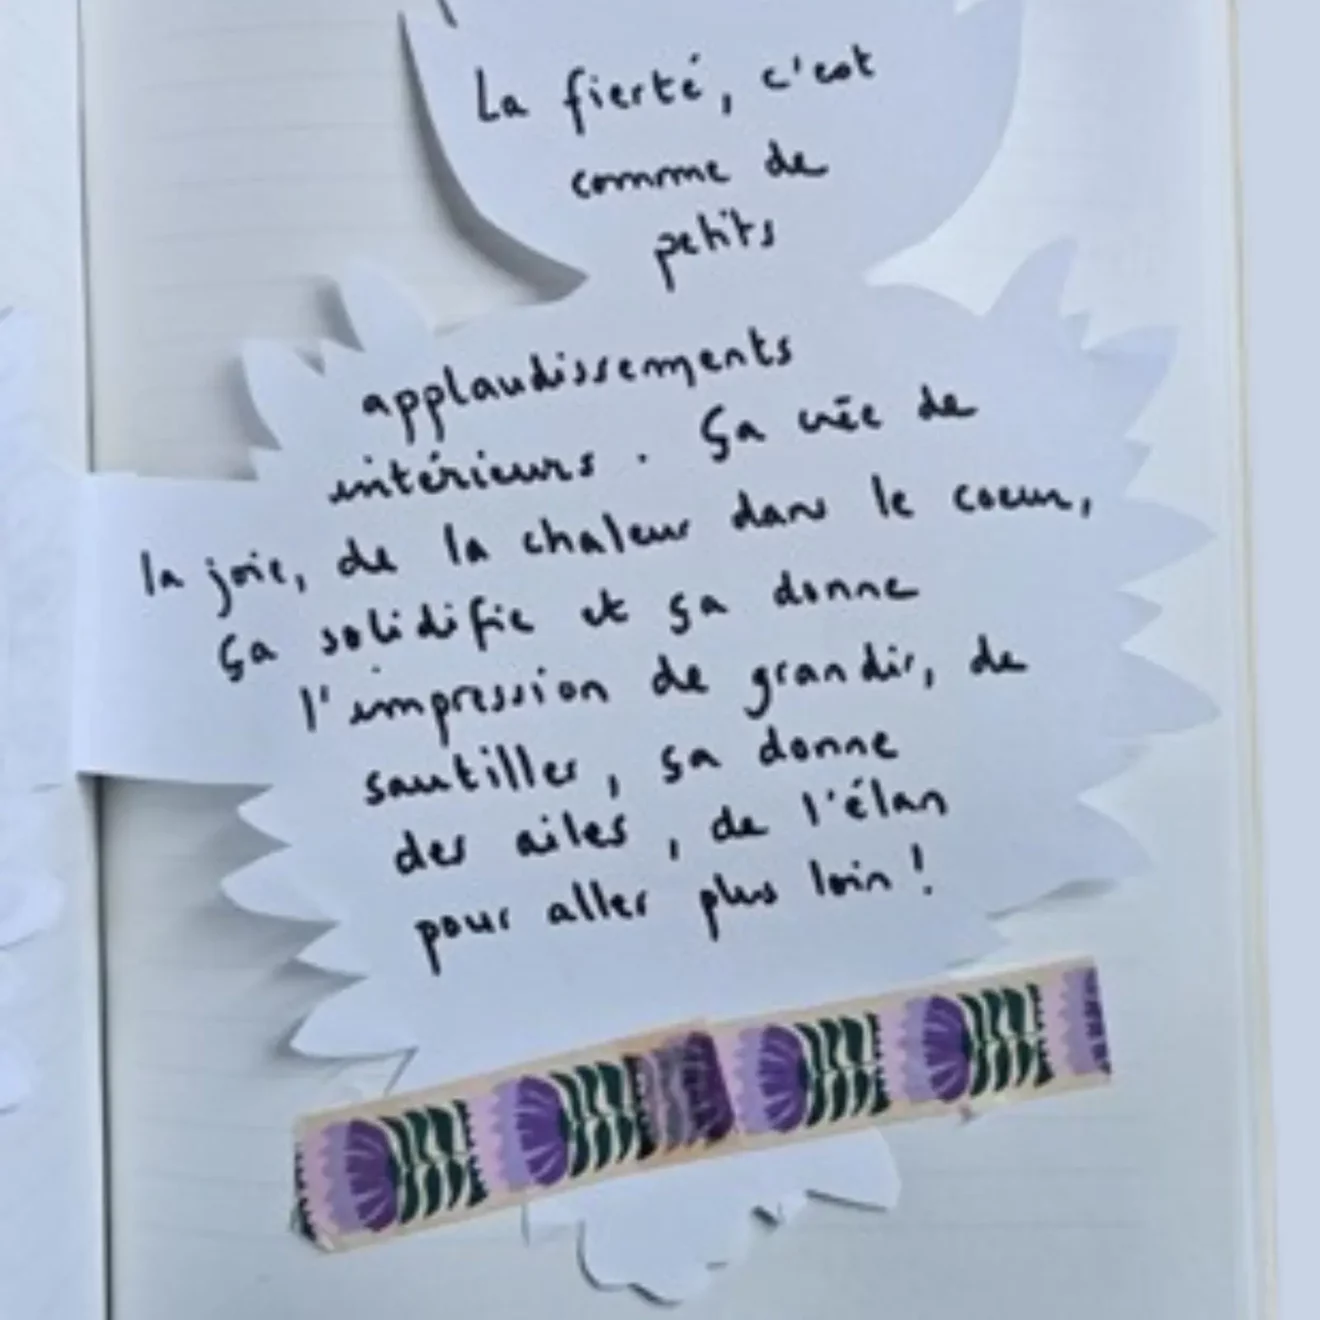 La fierté, c'est
comme de
petits
applaudissements
intérieurs. ça crée de
la joie, de la chaleur dans le coeur,
ça solidifie et ça donne
l'impression de grandir, de
sautiller, ça donne
des ailes, de l'élan
pour aller plus loin !